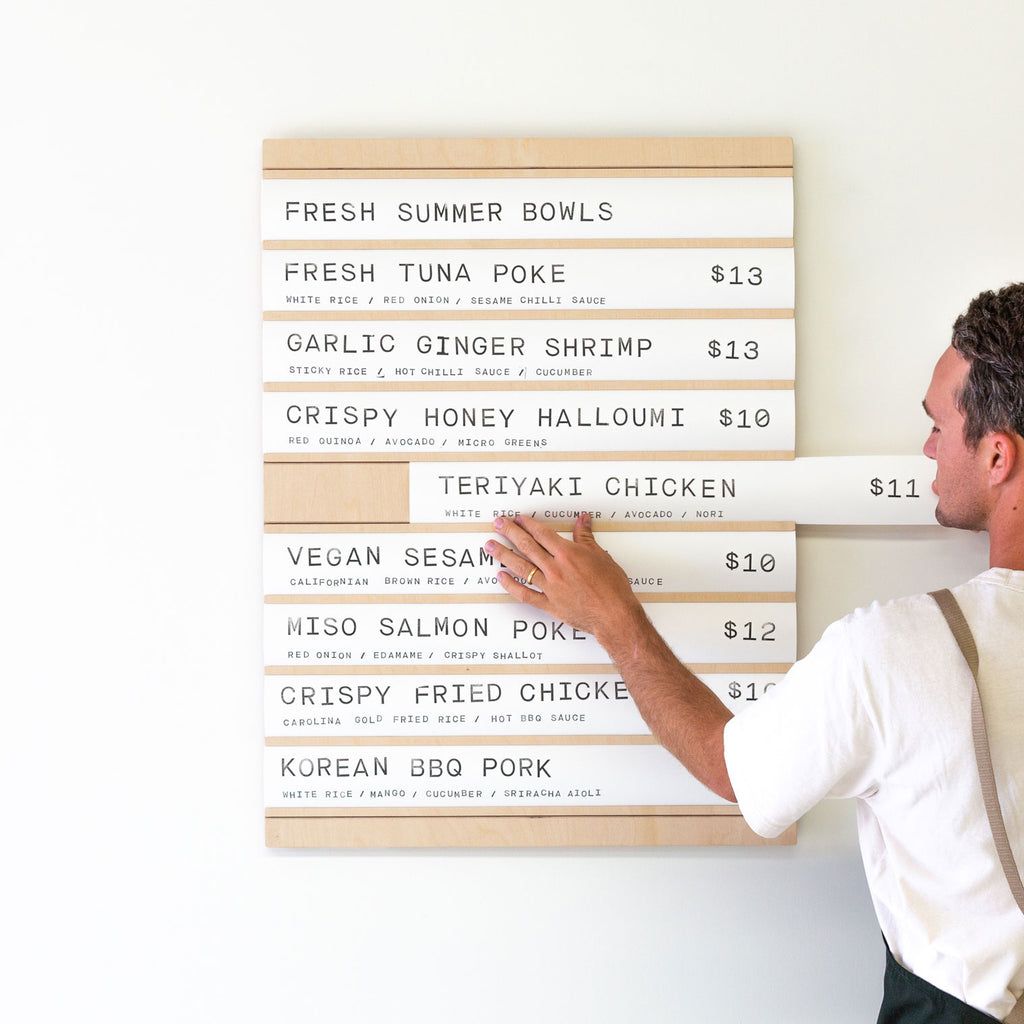 FRESH SUMMER BOWLS
FRESH TUNA POKE $13
WHITE RICE / RED ONION / SESAME CHILLI SAUCE
GARLIC GINGER SHRIMP $13
STICKY RICE / HOT CHILLI SAUCE / CUCUMBER
CRISPY HONEY HALLOUMI $10
RED QUINOA / AVOCADO / MICRO GREENS
TERIYAKI CHICKEN $11
WHITE RICE / CUCUMBER / AVOCADO / NORI
VEGAN $10
CALIFORNIAN BROWN RICE / SAUCE
MISO SALMON POKE $12
RED ONION / EDAMAME / CRISPY SHALLOT
CRISPY FRIED
CAROLINA GOLD FRIED RICE / HOT BBQ SAUCE
KOREAN BBQ PORK
WHITE RICE / MANGO / CUCUMBER / SRIRACHA AIOLI